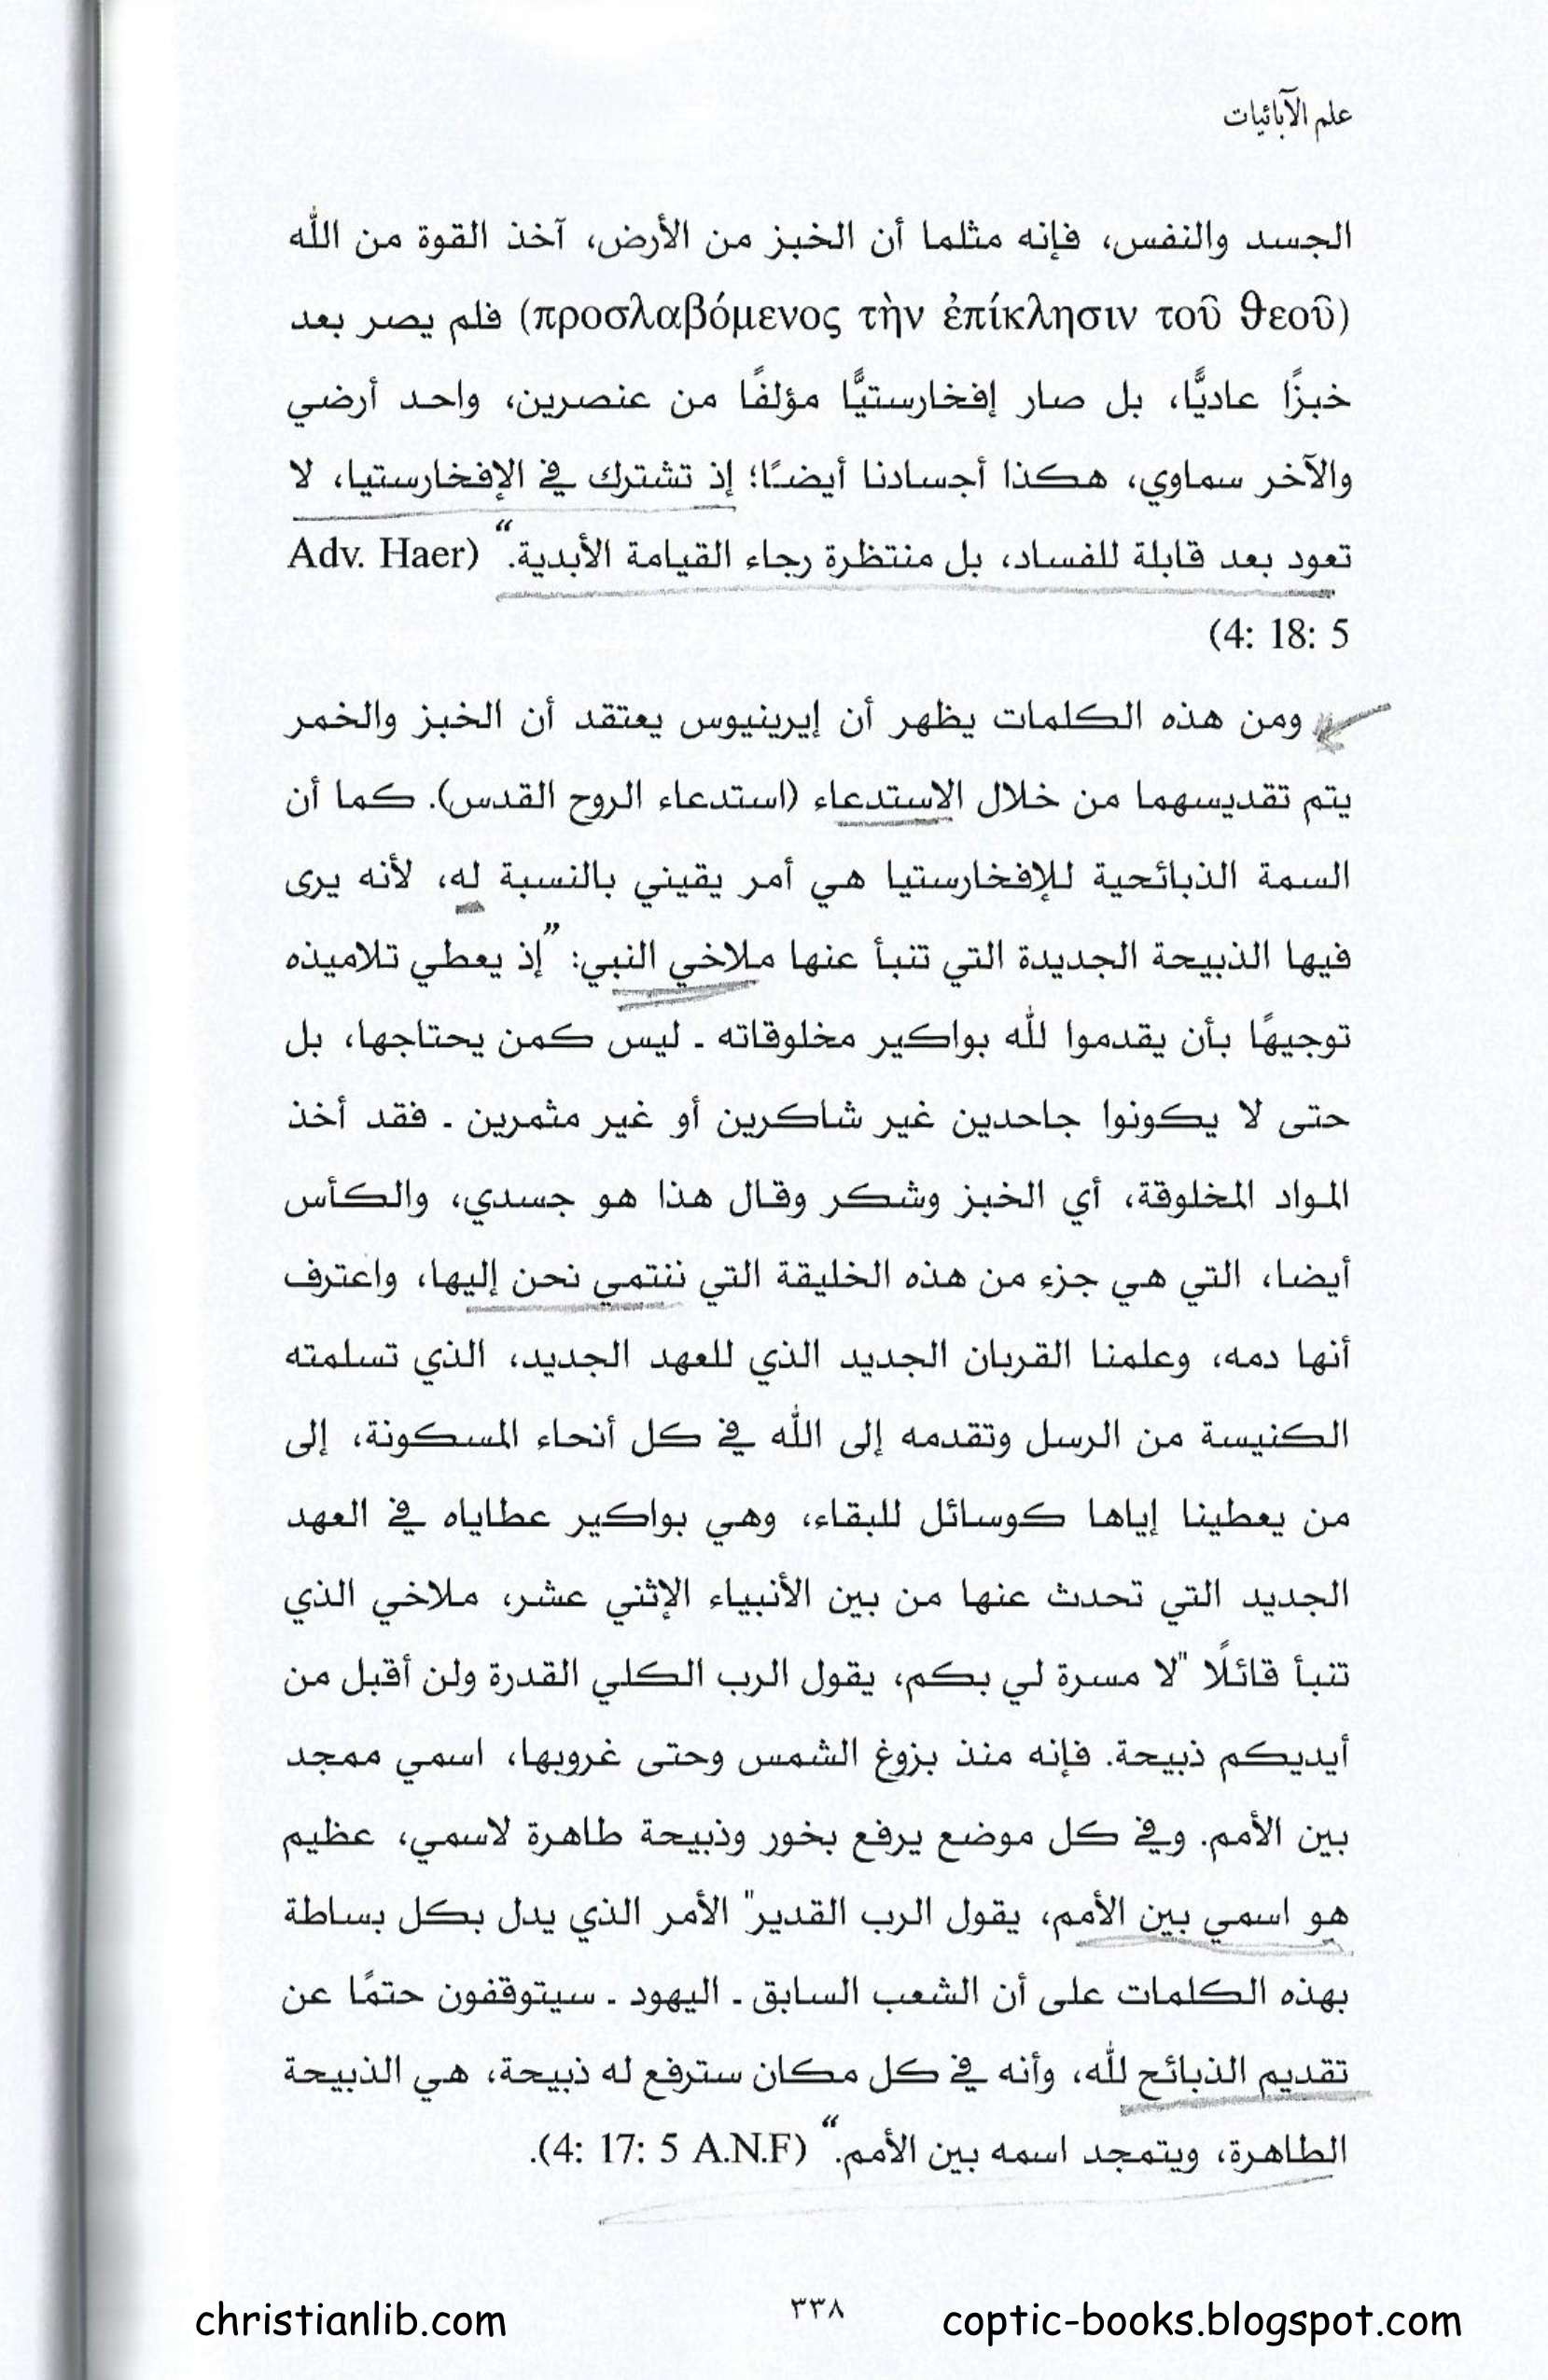 علم الآبائيات
الجسد والنفس، فإنه مثلما أن الخبز من الأرض، آخذ القوة من الله
(προσλαβόμενος τὴν ἐπίκλησιν τοῦ θεοῦ) فلم يصر بعد
خبزًا عاديًّا، بل صار إفخارستيًّا مؤلفًا من عنصرين، واحد أرضي
والآخر سماوي، هكذا أجسادنا أيضًا؛ إذ تشترك في الإفخارستيا، لا
تعود بعد قابلة للفساد، بل منتظرة رجاء القيامة الأبدية.“ (Adv. Haer
4: 18: 5)
ومن هذه الكلمات يظهر أن إيرينيوس يعتقد أن الخبز والخمر
يتم تقديسهما من خلال الاستدعاء (استدعاء الروح القدس). كما أن
السمة الذبائحية للإفخارستيا هي أمر يقيني بالنسبة له، لأنه يرى
فيها الذبيحة الجديدة التي تنبأ عنها ملاخي النبي: ”إذ يعطي تلاميذه
توجيهًا بأن يقدموا لله بواكير مخلوقاته ـ ليس كمن يحتاجها، بل
حتى لا يكونوا جاحدين غير شاكرين أو غير مثمرين ـ فقد أخذ
المواد المخلوقة، أي الخبز وشكر وقال هذا هو جسدي، والكأس
أيضا، التي هي جزء من هذه الخليقة التي ننتمي نحن إليها، واعترف
أنها دمه، وعلمنا القربان الجديد الذي للعهد الجديد، الذي تسلمته
الكنيسة من الرسل وتقدمه إلى الله في كل أنحاء المسكونة، إلى
من يعطينا إياها كوسائل للبقاء، وهي بواكير عطاياه في العهد
الجديد التي تحدث عنها من بين الأنبياء الإثني عشر، ملاخي الذي
تنبأ قائلًا "لا مسرة لي بكم، يقول الرب الكلي القدرة ولن أقبل من
أيديكم ذبيحة. فإنه منذ بزوغ الشمس وحتى غروبها، اسمي ممجد
بين الأمم. وفي كل موضع يرفع بخور وذبيحة طاهرة لاسمي، عظيم
هو اسمي بين الأمم، يقول الرب القدير" الأمر الذي يدل بكل بساطة
بهذه الكلمات على أن الشعب السابق ـ اليهود ـ سيتوقفون حتمًا عن
تقديم الذبائح لله، وأنه في كل مكان سترفع له ذبيحة، هي الذبيحة
الطاهرة، ويتمجد اسمه بين الأمم.“ (4: 17: 5 A.N.F).
٣٣٨
christianlib.com
coptic-books.blogspot.com